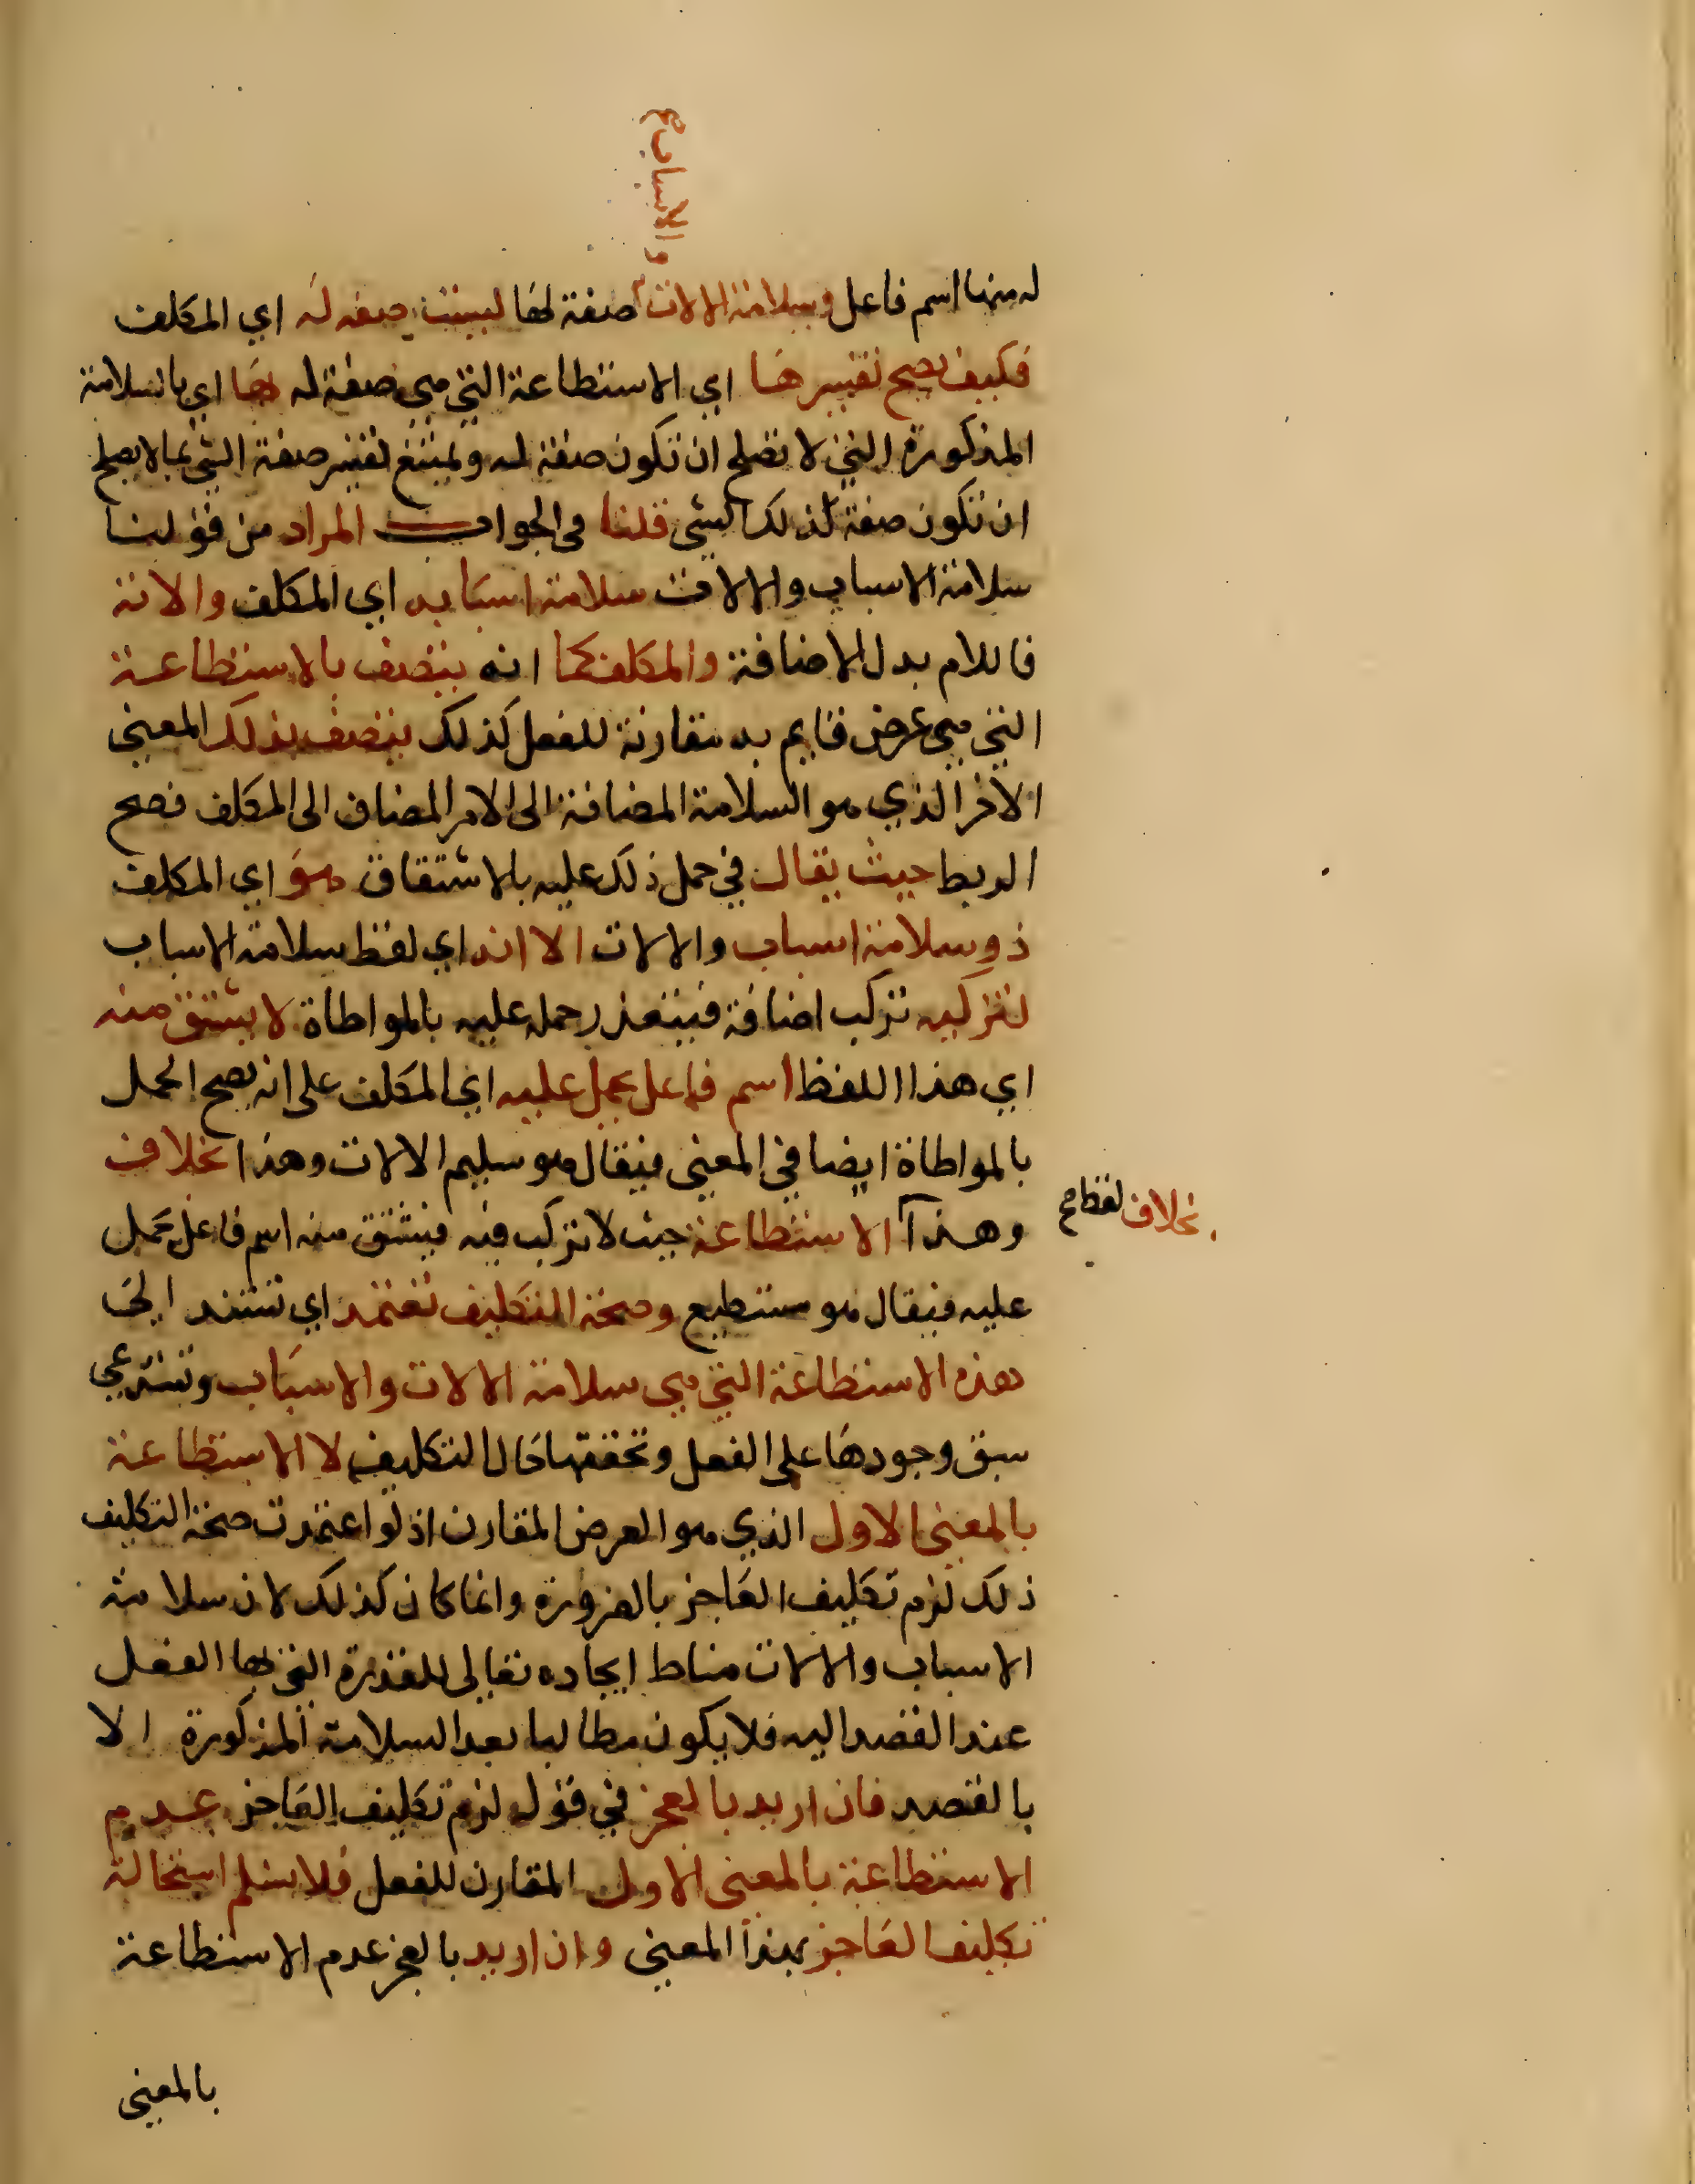 والاسباب
له منها اسم فاعل وسلامة الالات صفة لها ليست صفه له اي المكلف
فكيف يصح تفسيرها اي الاستطاعة التي هي صفة له بها اي بالسلامة
المذكورة التي لا تصلح ان تكون صفة له ويمتنع تفسير صفة الشئ بما لا يصلح
ان تكون صفة لذلك الشئ قلنا في الجواب المراد من قولنا
سلامة الاسباب والالات سلامة اسبابه اي المكلف والاته
فاللام بدل الاضافة والمكلف كما انه يتصف بالاستطاعة
التي هي عرض قايم به مقارنة للفعل كذلك يتصف بذلك المعنى
الاخر الذي هو السلامة المضافة الى الامر المضاف الى المكلف فصح
الربط حيث يقال في حمل ذلك عليه بالاشتقاق هو اي المكلف
ذو سلامة اسباب والالات الا انه اي لفظ سلامة الاسباب
لتركبه تركب اضافة فيتعذر حمله عليه بالمواطاة لا يشتق منه
اي هذا اللفظ اسم فاعل يحمل عليه اي المكلف على انه يصح الحمل
بالمواطاة ايضا في المعنى فيقال هو سليم الالات وهذا بخلاف
بخلاف لفظ صح
وهذا الاستطاعة حيث لا تركب فيه فيشتق منه اسم فاعل يحمل
عليه فيقال هو مستطيع وصحة التكليف تعتمد اي تستند الى
هذه الاستطاعة التي هي سلامة الالات والاسباب وتستدعي
سبق وجودها على الفعل وتحققها حال التكليف لا الاستطاعة
بالمعنى الاول الذي هو العرض المقارن اذ لو اعتمدت صحة التكليف
ذلك لزم تكليف العاجز بالضرورة وانما كان كذلك لان سلامة
الاسباب والالات مناط ايجاده تعالى للقدرة التي بها الفعل
عند القصد اليه فلا يكون مطالبا بعد السلامة المذكورة الا
بالقصد فان اريد بالعجز في قوله لزم تكليف العاجز عدم
الاستطاعة بالمعنى الاول المقارن للفعل فلا نسلم استحالة
تكليف العاجز بهذا المعنى وان اريد بالعجز عدم الاستطاعة
بالمعنى